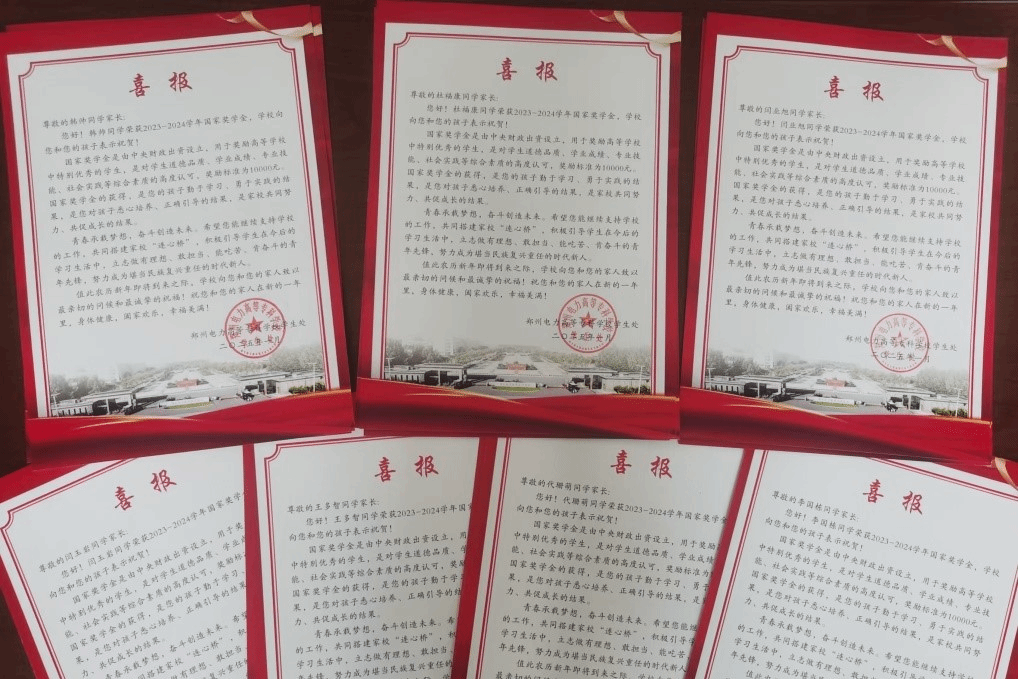 喜报
尊敬的韩帅同学家长:
您好!韩帅同学荣获2023-2024学年国家奖学金,学校向
您和您的孩子表示祝贺!
国家奖学金是由中央财政出资设立,用于奖励高等学校
中特别优秀的学生,是对学生道德品质、学业成绩、专业技
能、社会实践等综合素质的高度认可,奖励标准为10000元。
国家奖学金的获得,是您的孩子勤于学习、勇于实践的结
果,是您对孩子悉心培养、正确引导的结果,是家校共同努
力、共促成长的结果。
青春承载梦想,奋斗创造未来。希望您能继续支持学校
的工作,共同搭建家校“连心桥”,积极引导学生在今后的
学习生活中,立志做有理想、敢担当、能吃苦、肯奋斗的青
年先锋,努力成为堪当民族复兴重任的时代新人。
值此农历新年即将到来之际,学校向您和您的家人致以
最亲切的问候和最诚挚的祝福!祝您和您的家人在新的一年
里,身体健康,阖家欢乐,幸福美满!
郑州电力高等专科学校学生处
二〇二五年一月
喜报
尊敬的杜福康同学家长:
您好!杜福康同学荣获2023-2024学年国家奖学金,学校
向您和您的孩子表示祝贺!
国家奖学金是由中央财政出资设立,用于奖励高等学校
中特别优秀的学生,是对学生道德品质、学业成绩、专业技
能、社会实践等综合素质的高度认可,奖励标准为10000元。
国家奖学金的获得,是您的孩子勤于学习、勇于实践的结
果,是您对孩子悉心培养、正确引导的结果,是家校共同努
力、共促成长的结果。
青春承载梦想,奋斗创造未来。希望您能继续支持学校
的工作,共同搭建家校“连心桥”,积极引导学生在今后的
学习生活中,立志做有理想、敢担当、能吃苦、肯奋斗的
青年先锋,努力成为堪当民族复兴重任的时代新人。
值此农历新年即将到来之际,学校向您和您的家人致以
最亲切的问候和最诚挚的祝福!祝您和您的家人在新的一年
里,身体健康,阖家欢乐,幸福美满!
郑州电力高等专科学校学生处
二〇二五年一月
喜报
尊敬的闫业旭同学家长:
您好!闫业旭同学荣获2023-2024学年国家奖学金,学校
向您和您的孩子表示祝贺!
国家奖学金是由中央财政出资设立,用于奖励高等学校
中特别优秀的学生,是对学生道德品质、学业成绩、专业技
能、社会实践等综合素质的高度认可,奖励标准为10000元。
国家奖学金的获得,是您的孩子勤于学习、勇于实践的结
果,是您对孩子悉心培养、正确引导的结果,是家校共同努
力、共促成长的结果。
青春承载梦想,奋斗创造未来。希望您能继续支持学校
的工作,共同搭建家校“连心桥”,积极引导学生在今后的
学习生活中,立志做有理想、敢担当、能吃苦、肯奋斗的青
年先锋,努力成为堪当民族复兴重任的时代新人。
值此农历新年即将到来之际,学校向您和您的家人致以
最亲切的问候和最诚挚的祝福!祝您和您的家人在新的一年
里,身体健康,阖家欢乐,幸福美满!
郑州电力高等专科学校学生处
二〇二五年一月
喜报
尊敬的闫玉茹同学家长:
您好!闫玉茹同学荣获2023-2024学年国家奖学金
向您和您的孩子表示祝贺!
国家奖学金是由中央财政出资设立,用于奖
中特别优秀的学生,是对学生道德品质、学业成
能、社会实践等综合素质的高度认可,奖励标
国家奖学金的获得,是您的孩子勤于学习
果,是您对孩子悉心培养、正确引导的
力、共促成长的结果。
青春承载梦想,奋斗创造未来。希
的工作,共同搭建家校“连心桥”
学习生活中,立志做有理想、敢担
年先锋,努力成为堪当民族复
喜报
尊敬的王多智同学家长:
您好!王多智同学荣获2023-2024学年国家
向您和您的孩子表示祝贺!
国家奖学金是由中央财政出资设立,用于奖励
中特别优秀的学生,是对学生道德品质、学业
能、社会实践等综合素质的高度认可,奖励标
国家奖学金的获得,是您的孩子勤于学习
果,是您对孩子悉心培养、正确引导的结果
力、共促成长的结果。
青春承载梦想,奋斗创造未来。希望
的工作,共同搭建家校“连心桥”,积极引
学习生活中,立志做有理想、敢担当、能
年先锋,努力成为堪当民族复兴重任的
喜报
尊敬的代珊萌同学家长:
您好!代珊萌同学荣获2023-2024学年国家奖学金
向您和您的孩子表示祝贺!
国家奖学金是由中央财政出资设立,用于奖励
中特别优秀的学生,是对学生道德品质、学业成
能、社会实践等综合素质的高度认可,奖励标准为
国家奖学金的获得,是您的孩子勤于学习、勇于
果,是您对孩子悉心培养、正确引导的结果,是
力、共促成长的结果。
青春承载梦想,奋斗创造未来。希望您能
的工作,共同搭建家校“连心桥”,积极引导
学习生活中,立志做有理想、敢担当、能吃
年先锋,努力成为堪当民族复兴重任的时代
喜报
尊敬的李国栋同学家长:
您好!李国栋同学荣获2023-2024学年国家奖学金,学校
向您和您的孩子表示祝贺!
国家奖学金是由中央财政出资设立,用于奖励高等学校
中特别优秀的学生,是对学生道德品质、学业成绩、专业技
能、社会实践等综合素质的高度认可,奖励标准为10000元。
国家奖学金的获得,是您的孩子勤于学习、勇于实践的结
果,是您对孩子悉心培养、正确引导的结果,是家校共同努
力、共促成长的结果。
青春承载梦想,奋斗创造未来。希望您能继续支持学校
的工作,共同搭建家校“连心桥”,积极引导学生在今后的
学习生活中,立志做有理想、敢担当、能吃苦、肯奋斗的
年先锋,努力成为堪当民族复兴重任的时代新人。